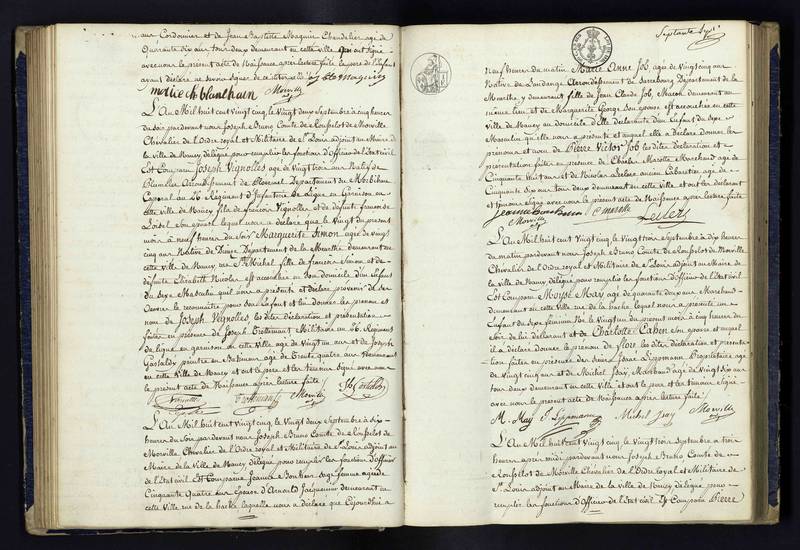 aux Cordonnier et de Jean Baptiste Maquin Chandelier age de
Quarante six ans tous deux demeurant en cette ville qui ont signé
avec nous le présent acte de Naissance après lecture faite le pere de l'Enfant
ayant déclaré ne savoir signer de
Morville
L'An Mil huit cent vingt cinq le Vingt deux Septembre à cinq heures
du soir pardevant nous Joseph Bruno Comte de Morville
Chevalier de l'Ordre royal et Militaire de St Louis adjoint au Maire de
la ville de Nancy délégué pour remplir les fonctions d'Officier de l'Etat civil
Est Comparu Joseph Vignolles age de Vingt trois ans Natif de
Arrondissement de Ploermel Département du Morbihan
Caporal au 26 Régiment d'Infanterie de Ligne en Garnison en
cette ville de Nancy fils de françois Vignolles et de défunte
lequel nous a déclaré que le Vingt du présent
mois à neuf heures du soir Marguerite Simon agée de vingt
cinq ans Native de Département de la Meurthe demeurant en
cette ville de Nancy rue St Michel fille de françois Simon et de
défunte Elizabeth Nicolas est accouchée en son domicile d'un Enfant
du sexe Masculin qu'il nous a présenté et déclaré provenir de ses
le reconnaître pour son Enfant et lui donner les prénoms et
nom de Joseph Vignolles les dites déclaration et présentation
faites en présence de Joseph Militaire au 26 Regiment
de ligne en garnison en cette ville age de Vingt un ans et de Joseph
peintre en Batiment age de Trente quatre ans demeurant
en cette ville de Nancy et ont le pere et les temoins signé avec nous
le présent acte de Naissance après lecture faite
Morville
L'An Mil huit cent Vingt cinq le Vingt deux Septembre à six
heures du soir pardevant nous Joseph Bruno Comte de
Morville Chevalier de l'Ordre royal et Militaire de St Louis adjoint au
Maire de la Ville de Nancy délégué pour remplir les fonctions d'Officier
de l'Etat civil Est Comparue Jeanne sage femme agée de
Cinquante Quatre ans épouse d'Arnould Jacquemin demeurant en
cette Ville rue de la hache laquelle nous a déclaré que Cejourd'hui à
Septante
neuf heures du matin Marie Anne Job agée de vingt cinq ans
Native de Arrondissement de Sarrebourg Département de la
Meurthe y demeurant fille de Jean Claude Job Macon demeurant au
même lieu et de Marguerite George son épouse est accouchée en cette
ville de Nancy au domicile d'Elle déclarante d'un Enfant du sexe
Masculin qu'elle nous a présenté et auquel elle a déclaré donner les
prénoms et nom de Pierre Victor Job les dites déclaration et
présentation faites en présence de Charles Marotte Marchand age de
Cinquante huit ans et de Nicolas ancien Cabaretier age de
Cinquante six ans tous deux demeurant en cette ville et ont les déclarant
et témoins signé avec nous le présent acte de Naissance après lecture faite
Morville
L'An Mil huit cent vingt cinq le Vingt trois Septembre à dix heures
du matin pardevant nous Joseph Bruno Comte de Morville
Chevalier de l'Ordre royal et Militaire de St Louis adjoint au Maire de
la Ville de Nancy délégué pour remplir les fonctions d'Officier de l'Etat civil
Est Comparu Moyse May age de quarante deux ans Marchand
demeurant en cette Ville rue de la hache lequel nous a présenté un
Enfant du Sexe féminin Né le Vingt un du présent mois à cinq heures du
soir de lui déclarant et de Charlotte Cahen son épouse et auquel
il a déclaré donner le prénom de les dites déclaration et présenta-
tion faites en présence des sieurs Lippmann age
de vingt cinq ans et de Michel Isay Marchand age de Vingt six ans
tous deux demeurant en cette Ville et ont le pere et les temoins signé
avec nous le présent acte de Naissance après lecture faite
M. May Lippmann Michel Isay Morville
L'An Mil huit cent Vingt cinq le Vingt trois Septembre à trois
heures après midi pardevant nous Joseph Bruno Comte de
Morville Chevalier de l'Ordre royal et Militaire de
St Louis adjoint au Maire de la ville de Nancy délégué pour
remplir les fonctions d'Officier de l'Etat civil Est Comparu Pierre